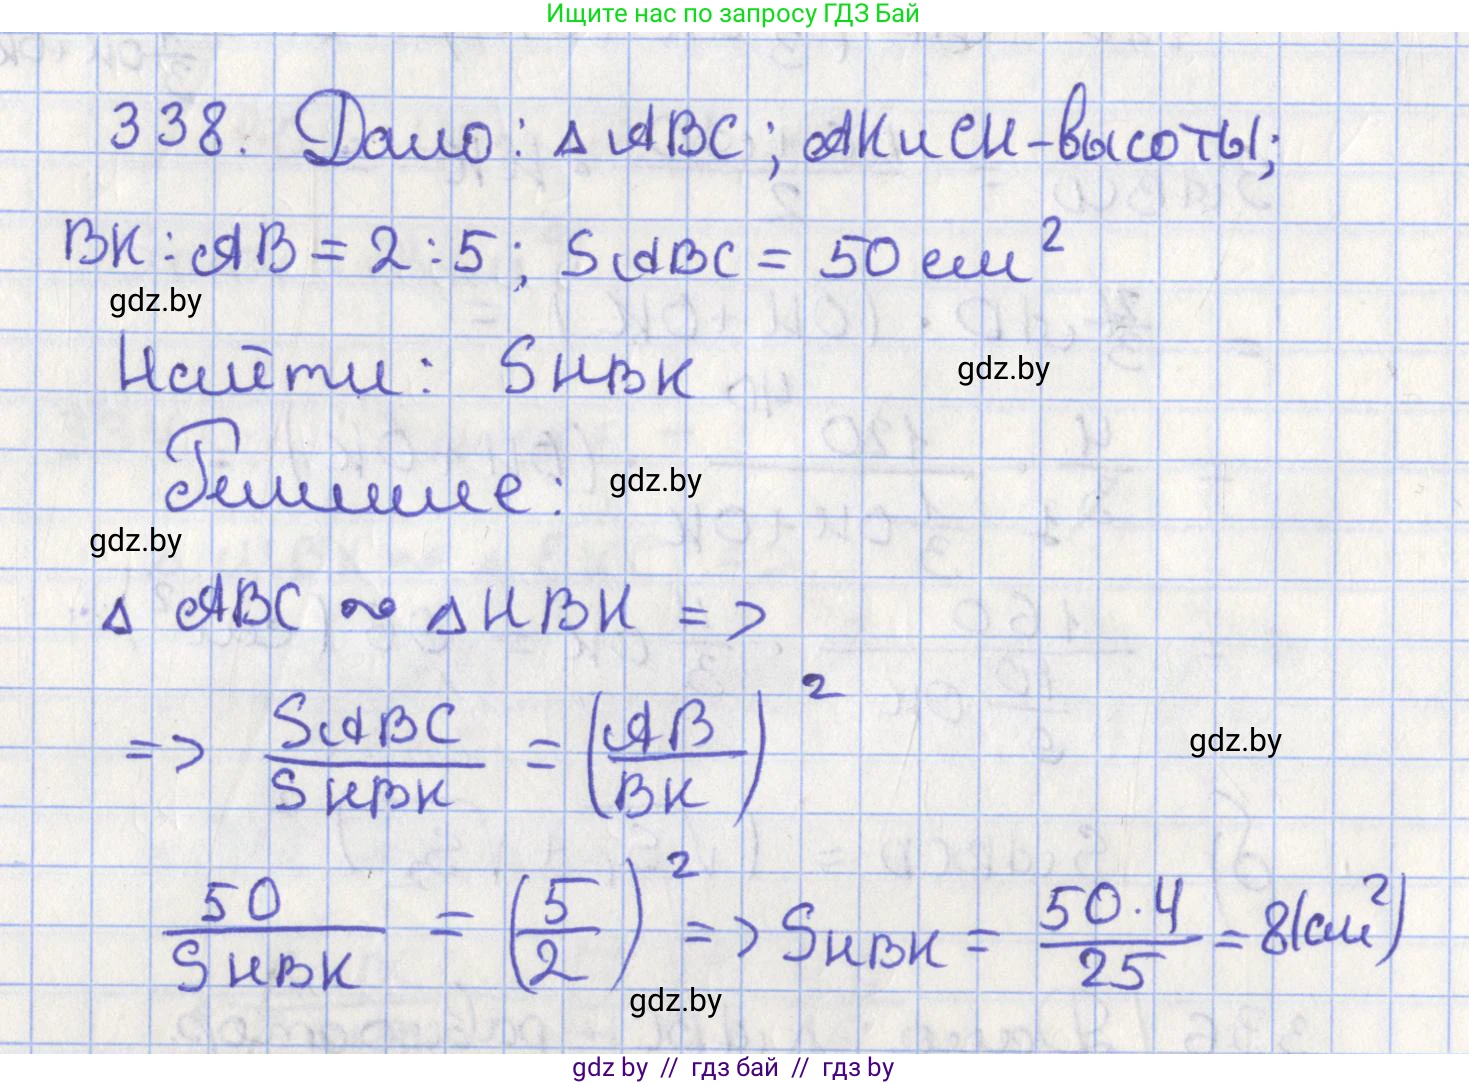 Ищите нас по запросу ГДЗ Бай
338. Дано: △ABC; AK и CH - высоты;
BK : AB = 2 : 5; SABC = 50 см²
gdz.by
Найти: SHBK
gdz.by
Решение:
gdz.by
gdz.by
△ ABC ~ △HBK =>
=> SABC/SHBK = (AB/BK)²
gdz.by
50/SHBK = (5/2)² => SHBK = 50·4/25 = 8(см²)
gdz.by
gdz by // гдз бай // гдз by